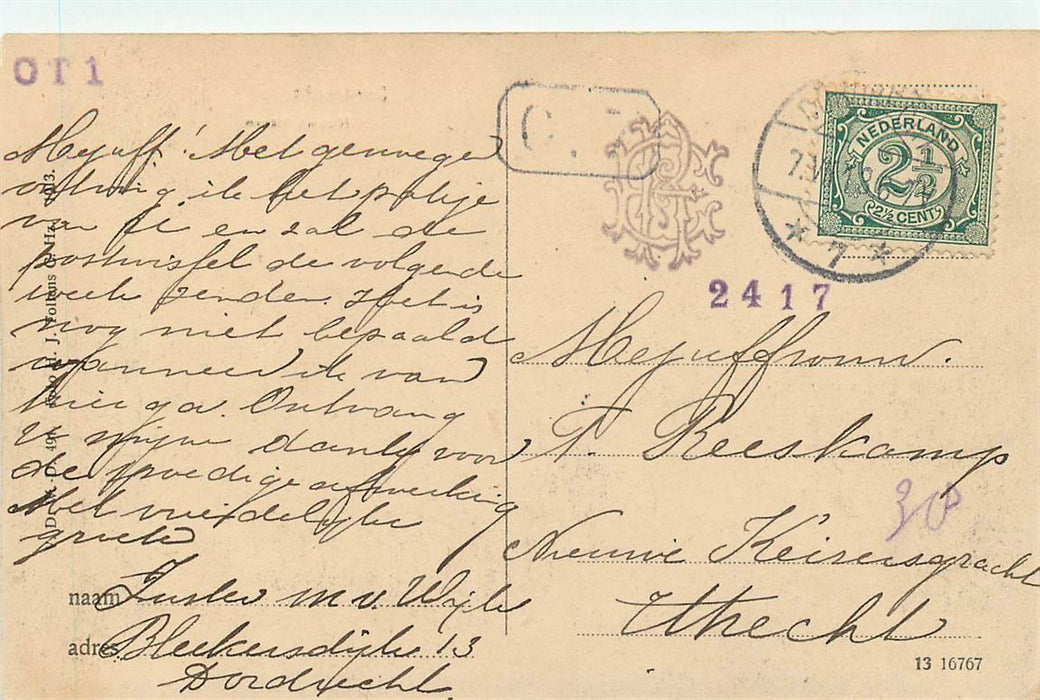 OT1
Mejuff! Met genoegen
ontving ik het patije
van U en zal de
postwissel de volgende
week zenden. Het is
nog niet bepaald
wanneer ik van
hier ga. Ontvang
U mijn dank voor
de spoedige afwerking
Met vriendelijke
groete
naam Zuster M v. Wijk
adres Bleekersdijk 13
Dordrecht
J. Hz.
NEDERLAND
2½
2½ CENT
7
2417
Mejuffrouw.
T. Reeskamp
30
Nieuwe Keizersgracht
Utrecht
13 16767